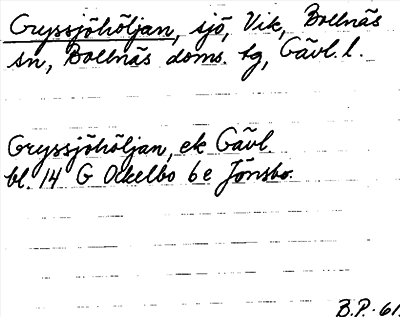 Gryssjöhöljan, sjö, Vik, Bollnäs
sn, Bollnäs doms. tg, Gävl. l.
Gryssjöhöljan, ek Gävl.
bl. 14 G Ockelbo 6 e Jönsbo.
B.P. 61.